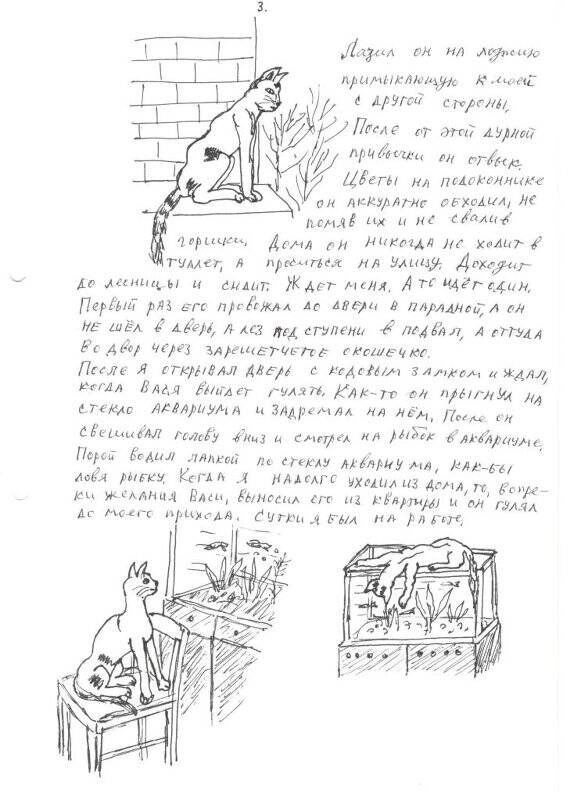 3.
Лазил он на лоджию
примыкающую к моей
с другой стороны.
После от этой дурной
привычки он отвык.
Цветы на подоконнике
он аккуратно обходил, не
помяв их и не свалив
горшки. Дома он никогда не ходит в
туалет, а проситься на улицу. Доходит
до лесницы и сидит. Ждет меня. А то идёт один.
Первый раз его провожал до двери в парадной, а он
не шёл в дверь, а лез под ступени в подвал, а оттуда
во двор через зарешетчетое окошечко.
После я открывал дверь с кодовым замком и ждал,
когда Вася выйдет гулять. Как-то он прыгнул на
стекло аквариума и задремал на нём. После он
свешивал голову вниз и смотрел на рыбок в аквариуме.
Порой водил лапкой по стеклу аквариума, как-бы
ловя рыбку. Когда я надолго уходил из дома, то, вопре-
ки желания Васи, выносил его из квартиры и он гулял
до моего прихода. Сутки я был на работе.